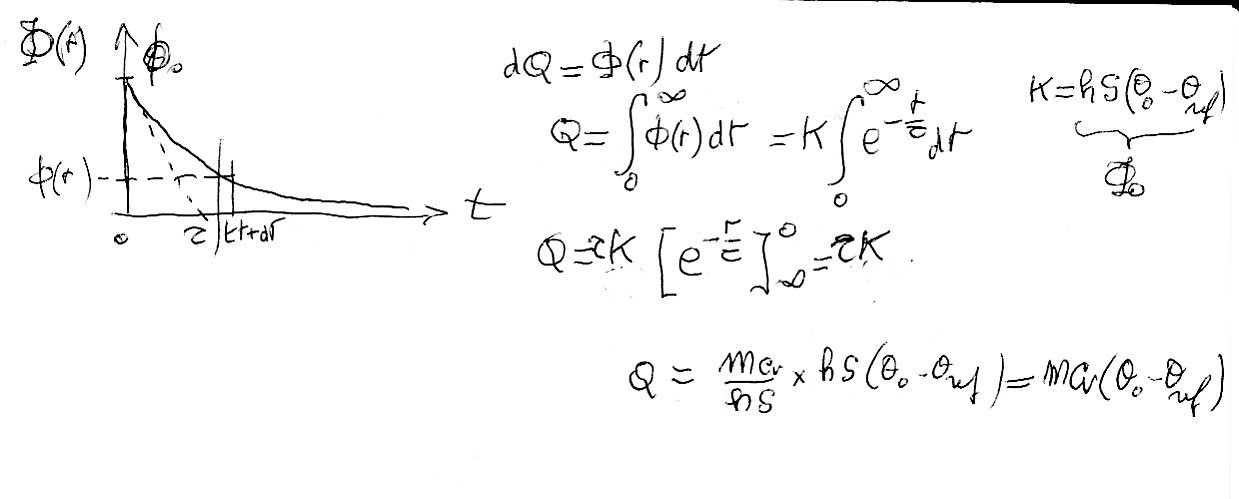 Φ(t)
ϕ₀
ϕ(t)
0 τ t t+dt
t
dQ = Φ(t) dt
Q = ∫₀^∞ ϕ(t) dt = K ∫₀^∞ e^(-t/τ) dt
K = hS(θ₀ - θref)
Φ₀
Q = τK [e^(-t/τ)]_∞^0 = τK.
Q = mcv/hS × hS(θ₀ - θref) = mcv(θ₀ - θref)